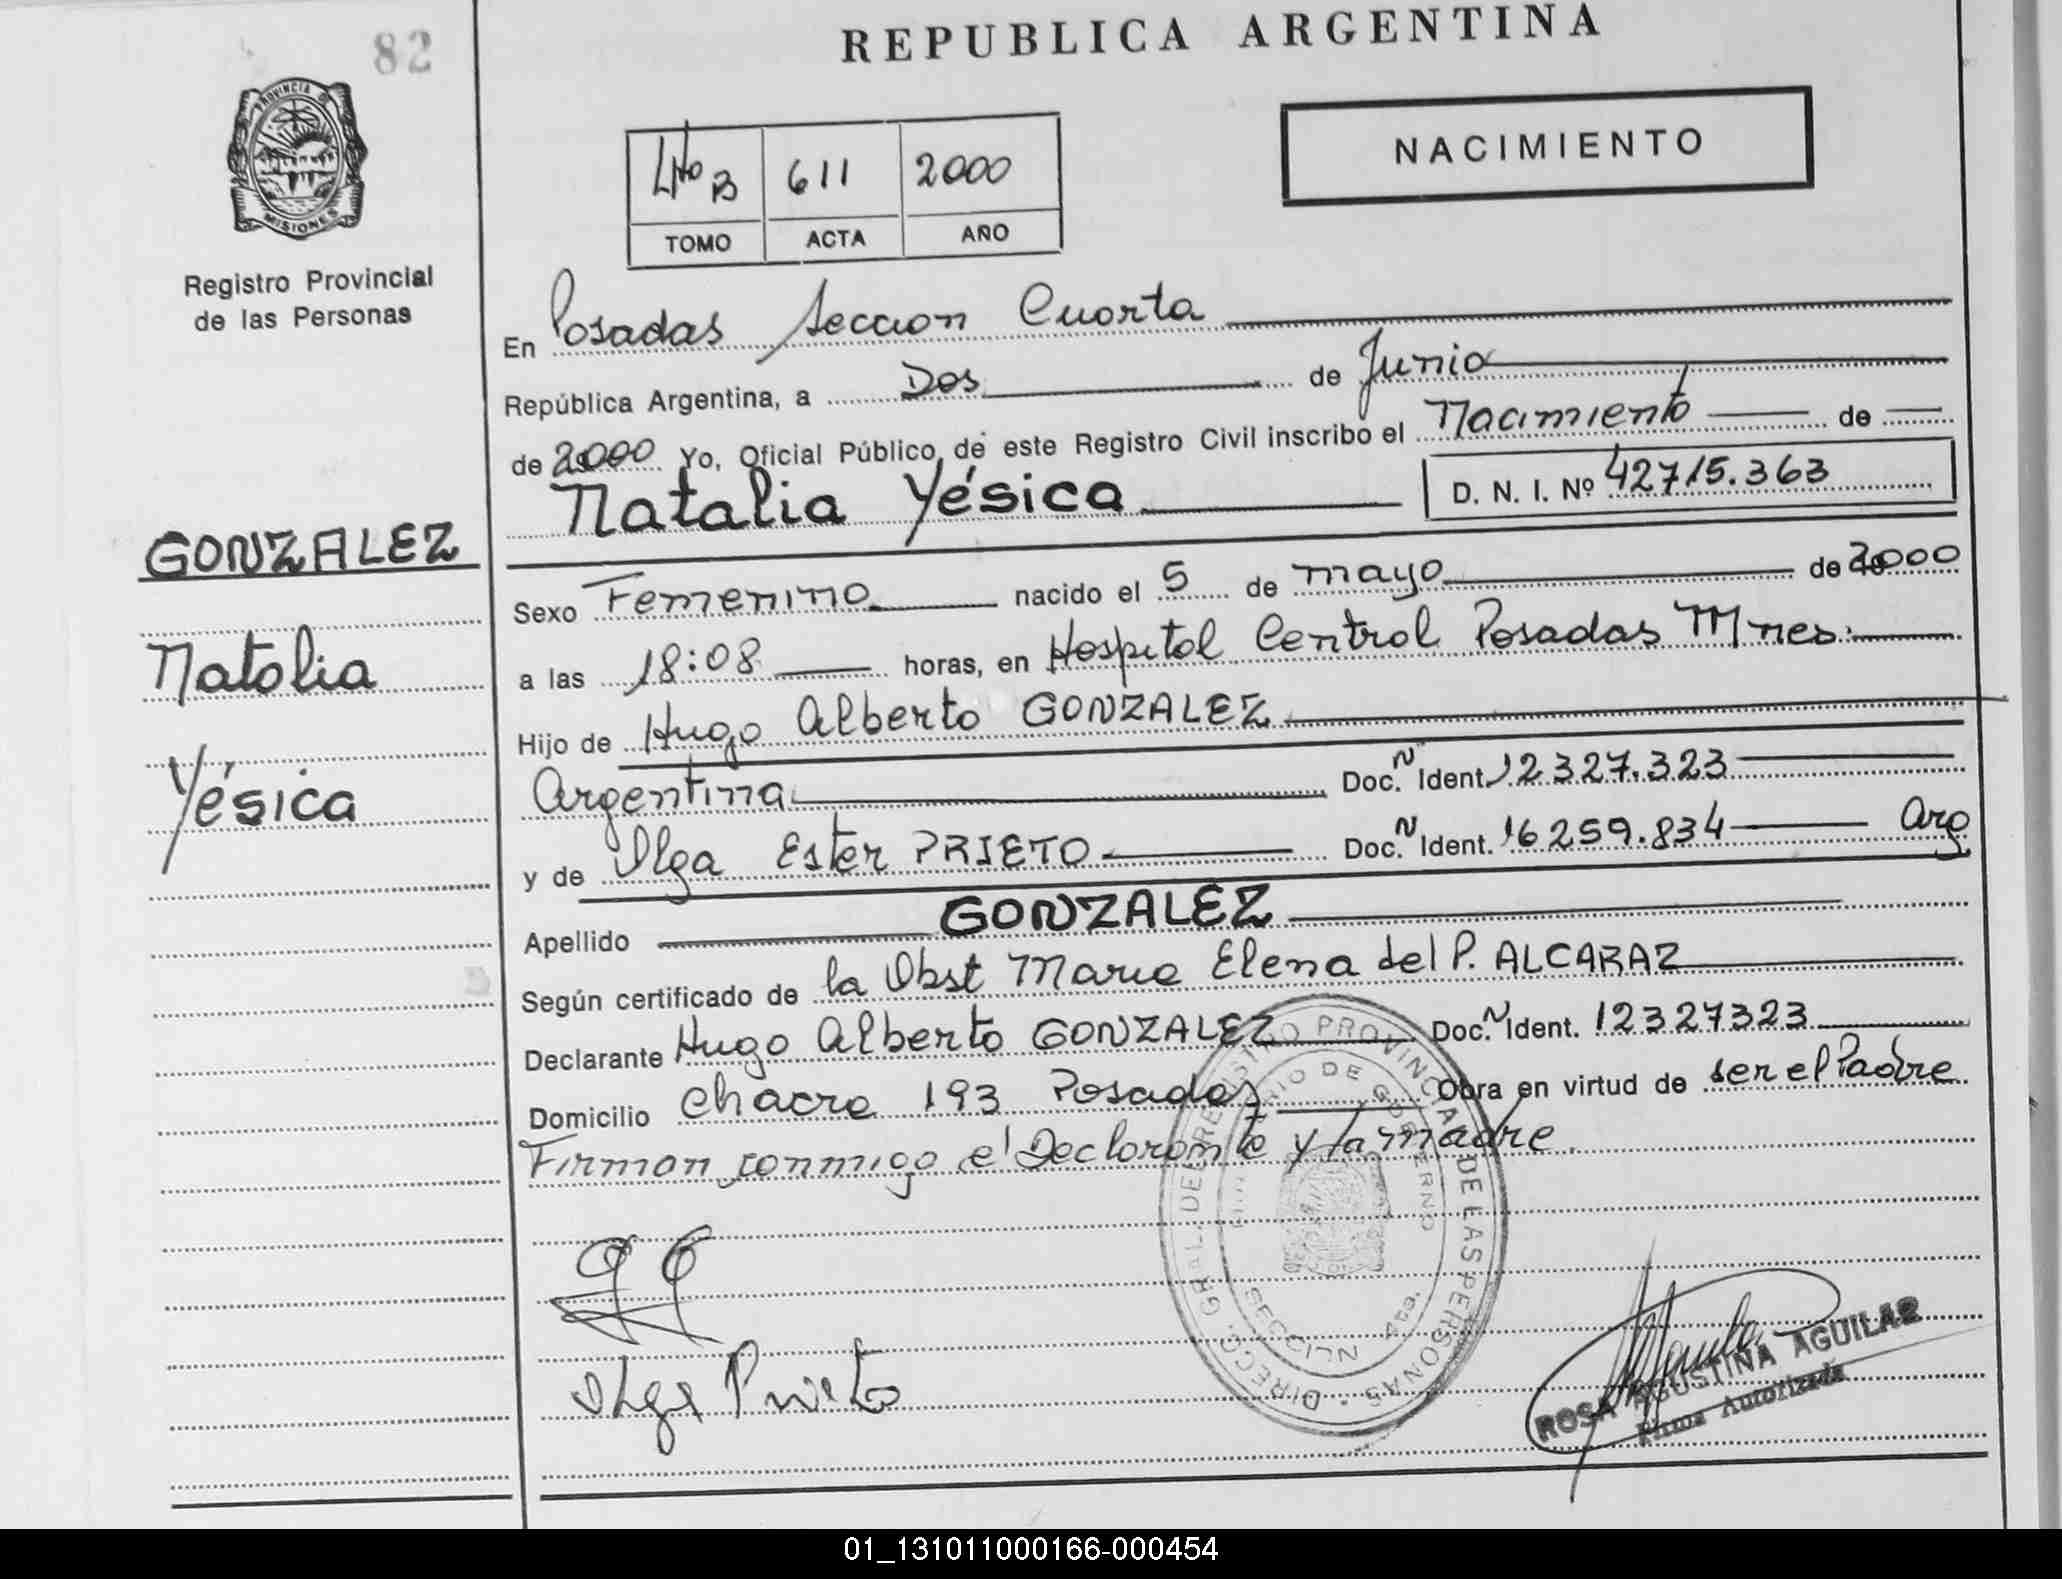 82
REPUBLICA ARGENTINA
PROVINCIA DE
MISIONES
Registro Provincial
de las Personas
4to B 611 2000
TOMO ACTA AÑO
NACIMIENTO
En Posadas Seccion Cuarta
República Argentina, a Dos de Junio
de 2000 Yo, Oficial Público de este Registro Civil inscribo el Nacimiento de
Natalia Yésica D. N. I. Nº 42715.363
GONZALEZ
Natalia
Yésica
Sexo Femenino nacido el 5 de mayo de 2000
a las 18:08 horas, en Hospital Central Posadas Mnes.
Hijo de Hugo Alberto GONZALEZ
Argentina Doc. N Ident. 12.327.323
y de Olga Ester PRIETO Doc. N Ident. 16259.834 Arg
Apellido GONZALEZ
Según certificado de la Obst Maria Elena del P. ALCARAZ
Declarante Hugo Alberto GONZALEZ Doc. N Ident. 12327323
Domicilio Chacra 193 Posadas Obra en virtud de ser el Padre
Firman conmigo el Declarante y la madre.
DIRECC. GRAL. DEL REGISTRO PROVINCIAL DE LAS PERSONAS
DE GOBIERNO
Olga Prieto
ROSA AGUSTINA AGUILAR
Firma Autorizada
01_131011000166-000454